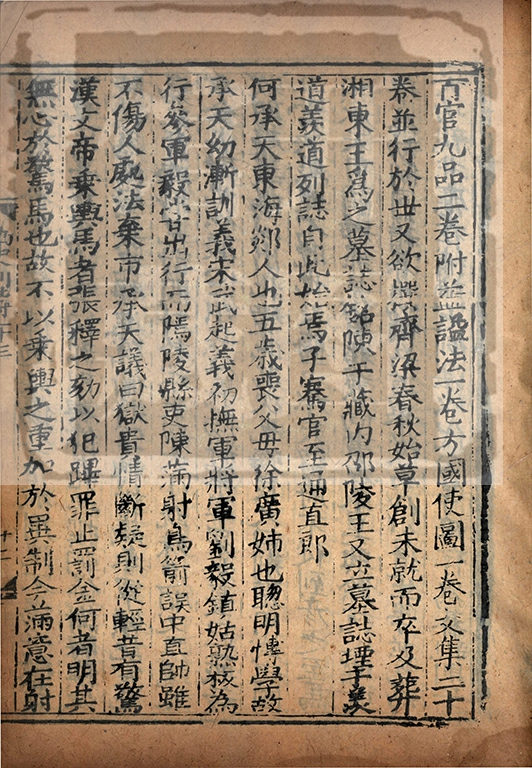 百官九品二卷附益謚法一卷方國使圖一卷文集二十
卷並行於世又欲撰齊梁春秋始草創未就而卒及葬
湘東王爲之墓誌銘陳于藏内邵陵王又立墓誌堙于羡
道羡道列誌自此始焉子騫官至通直郎
何承天東海郯人也五歳喪父母徐廣姉也聰明愽學故
承天幼漸訓義宋武起義初撫軍將軍劉毅鎮姑熟板為
行參軍毅嘗出行而鄢陵縣吏陳滿射鳥箭誤中直帥雖
不傷人處法棄市承天議曰獄貴情斷疑則從輕昔有驚
漢文帝乘輿馬者張釋之劾以犯蹕罪止罰金何者明其
無心於驚馬也故不以乘輿之重加於異制今滿意在射